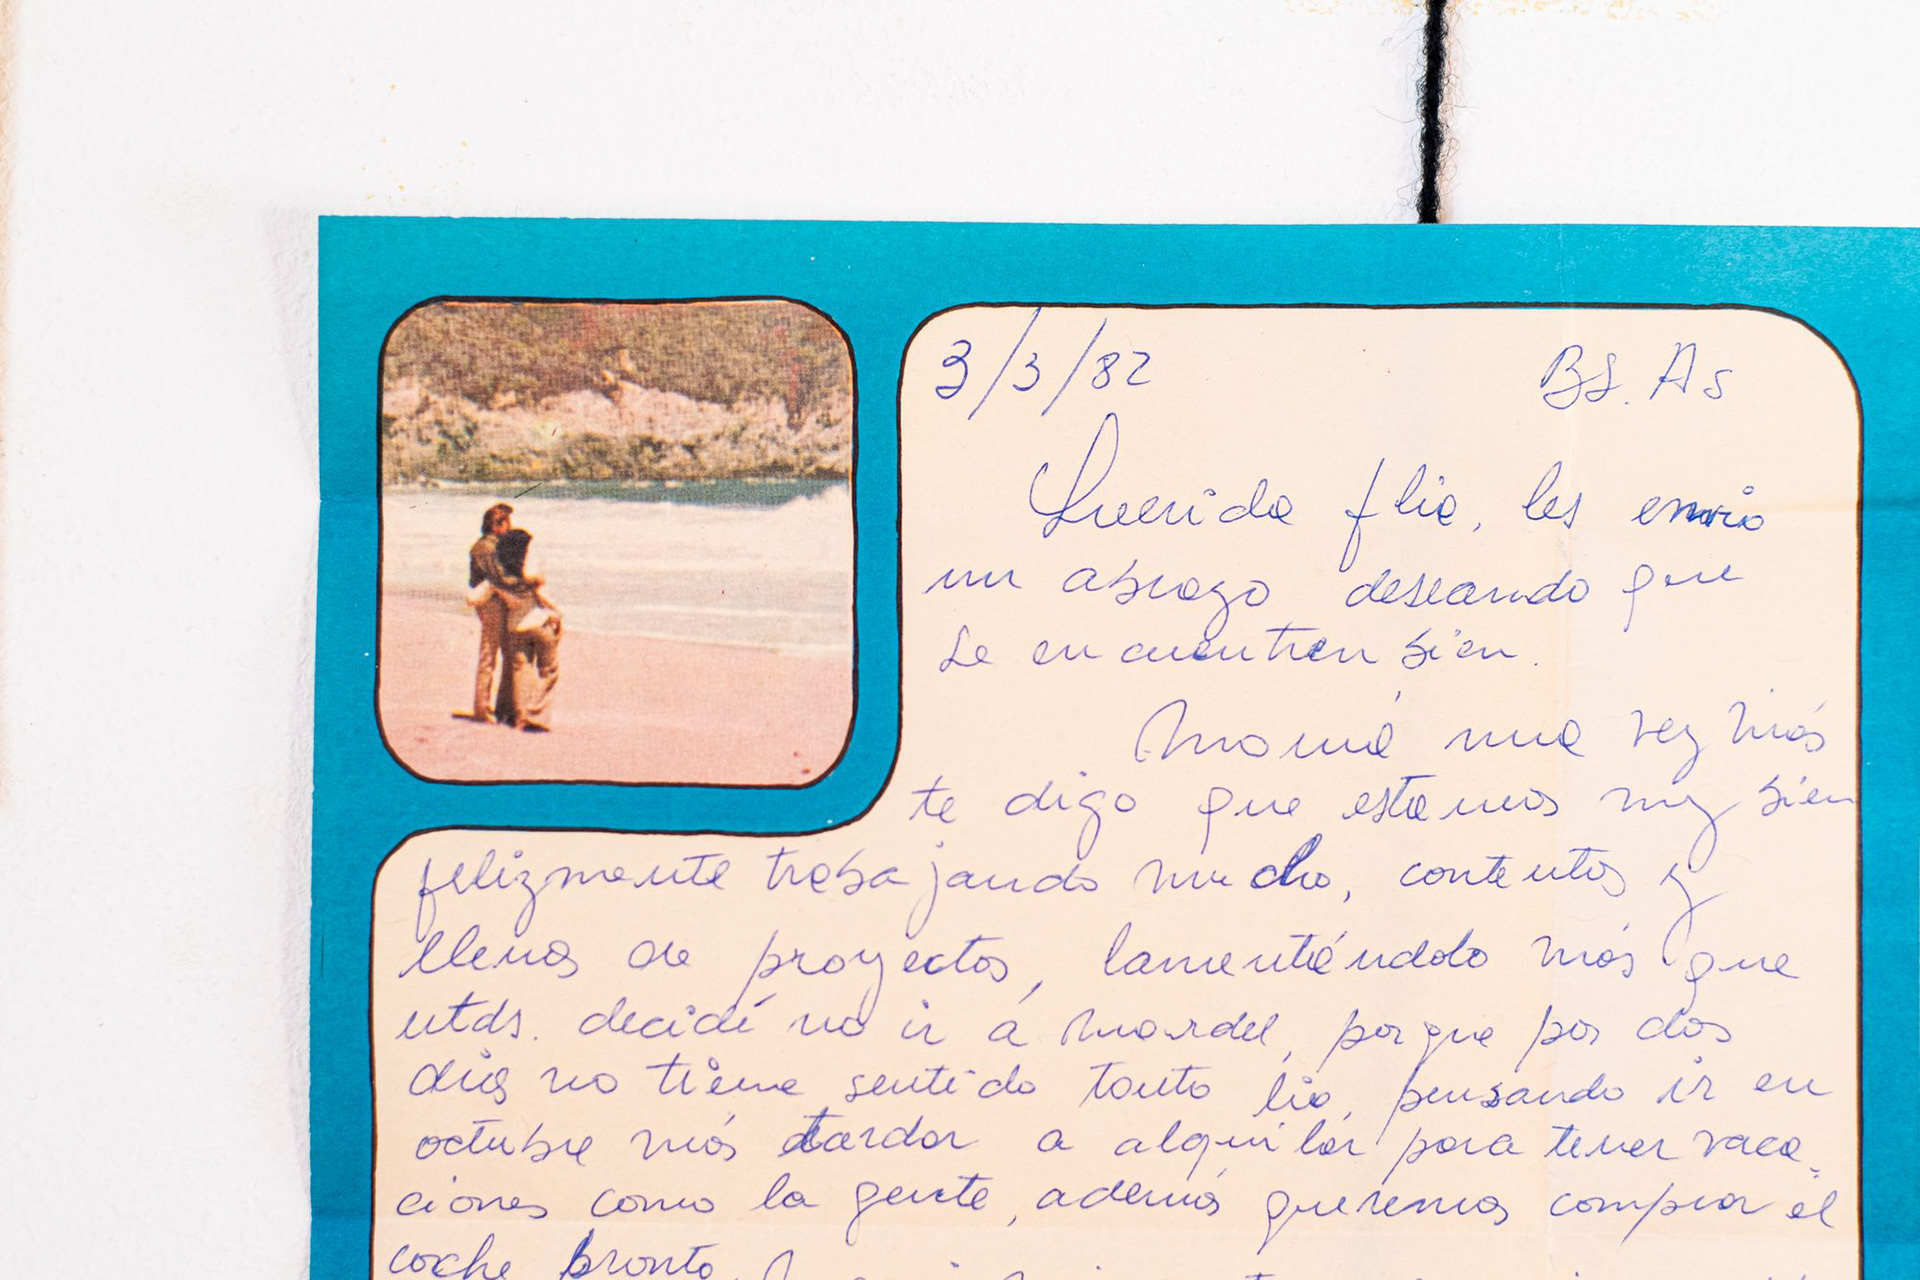 3/3/82 BS. As
Querida flia, les envio
un abrazo deseando que
se encuentren bien.
Mamá una vez más
te digo que estamos muy bien
felizmente trabajando mucho, contentos y
llenos de proyectos, lamentándolo más que
utds. decidí no ir á Mardel, porque por dos
días no tiene sentido tanto lio, pensando ir en
octubre más tardar a alquilar para tener vaca-
ciones como la gente, además queremos comprar el
coche pronto,